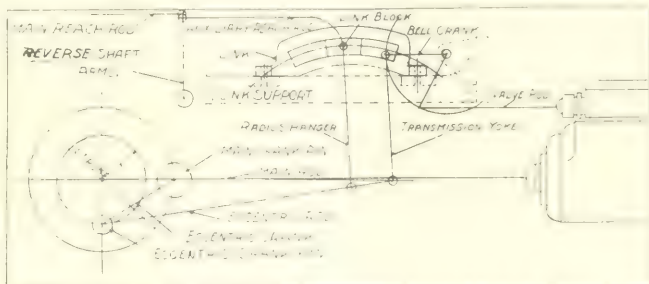 MAIN REACH ROD
LINK BLOCK
BELL CRANK
REVERSE SHAFT
ARM
LINK
LINK SUPPORT
VALVE ROD
RADIUS HANGER
TRANSMISSION YOKE
MAIN CRANK PIN
MAIN ROD
ECCENTRIC ROD
ECCENTRIC CRANK
ECCENTRIC CRANK PIN